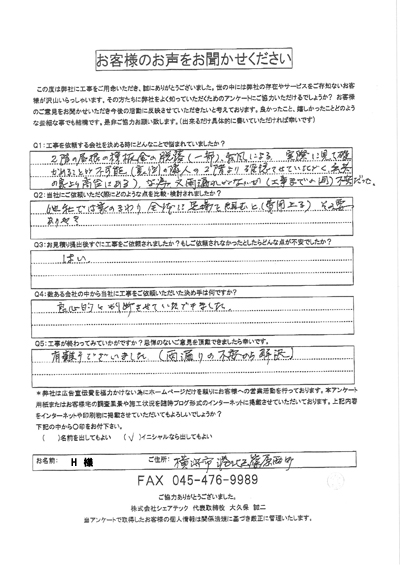 お客様のお声をお聞かせください
この度は弊社に工事をご用命いただき、誠にありがとうございました。世の中には弊社の存在やサービスをご存知ないお客
様が沢山いらっしゃいます。その方たちに弊社をよく知っていただくためのアンケートにご協力いただけるでしょうか？ お客様
のご意見をお聞かせいただき今後の活動に反映させていただきたいと考えております。良かったこと、嬉しかったことどのよう
な些細な事でも結構です。是非ご協力お願い致します。（出来るだけ具体的に書いていただければ幸いです）
Q1:工事を依頼する会社を決める時にどのようなことで悩まれていましたか？
2階の屋根の棟板金の脱落（一部）、台風による 実際に見て確
かめることが不可能
の為より高値にある）なお、又雨漏れしないか（工事までの間）不安だった。
Q2:当社にご依頼いただく際にどのような点を比較・検討されましたか？
他社では家のまわり全体に足場を組むと（費用上る）その必要
ありや？
Q3:お見積り提出後すぐに工事をご依頼されましたか？もしご依頼されなかったとしたらどんな点が不安でしたか？
はい
Q4:数ある会社の中から当社に工事をご依頼いただいた決め手は何ですか？
良心的と判断させていただきました。
Q5:工事が終わってみていかがですか？忌憚のないご意見を頂戴できましたら幸いです。
有難うございました（雨漏りの不安から解放）
＊弊社は広告宣伝費を極力かけない為にホームページだけを頼りにお客様への営業活動を行っております。本アンケート
用紙またはお客様宅の調査風景や施工状況を随時ブログ形式のインターネットに掲載させていただいております。上記内容
をインターネットや印刷物に掲載させていただいてもよろしいでしょうか？
下記の中から○印をお付下さい。
（ ）名前を出してもよい （✓）イニシャルなら出してもよい
お名前: H 様 ご住所: 横浜市港北区篠原西町
FAX 045-476-9989
ご協力ありがとうございました。
株式会社シェアテック 代表取締役 大久保 誠二
当アンケートで取得したお客様の個人情報は関係法規に基づき厳正に管理いたします。